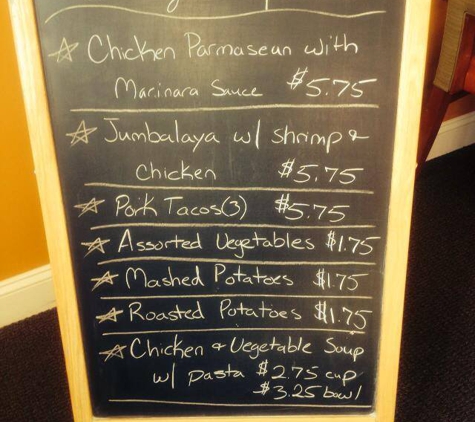 ☆ Chicken Parmasean with
Marinara Sauce $5.75
☆ Jumbalaya w/ shrimp &
chicken $5.75
☆ Pork Tacos(3) $5.75
☆ Assorted Vegetables $1.75
☆ Mashed Potatoes $1.75
☆ Roasted Potatoes $1.75
☆ Chicken & Vegetable Soup
w/ pasta $2.75 cup
$3.25 bowl